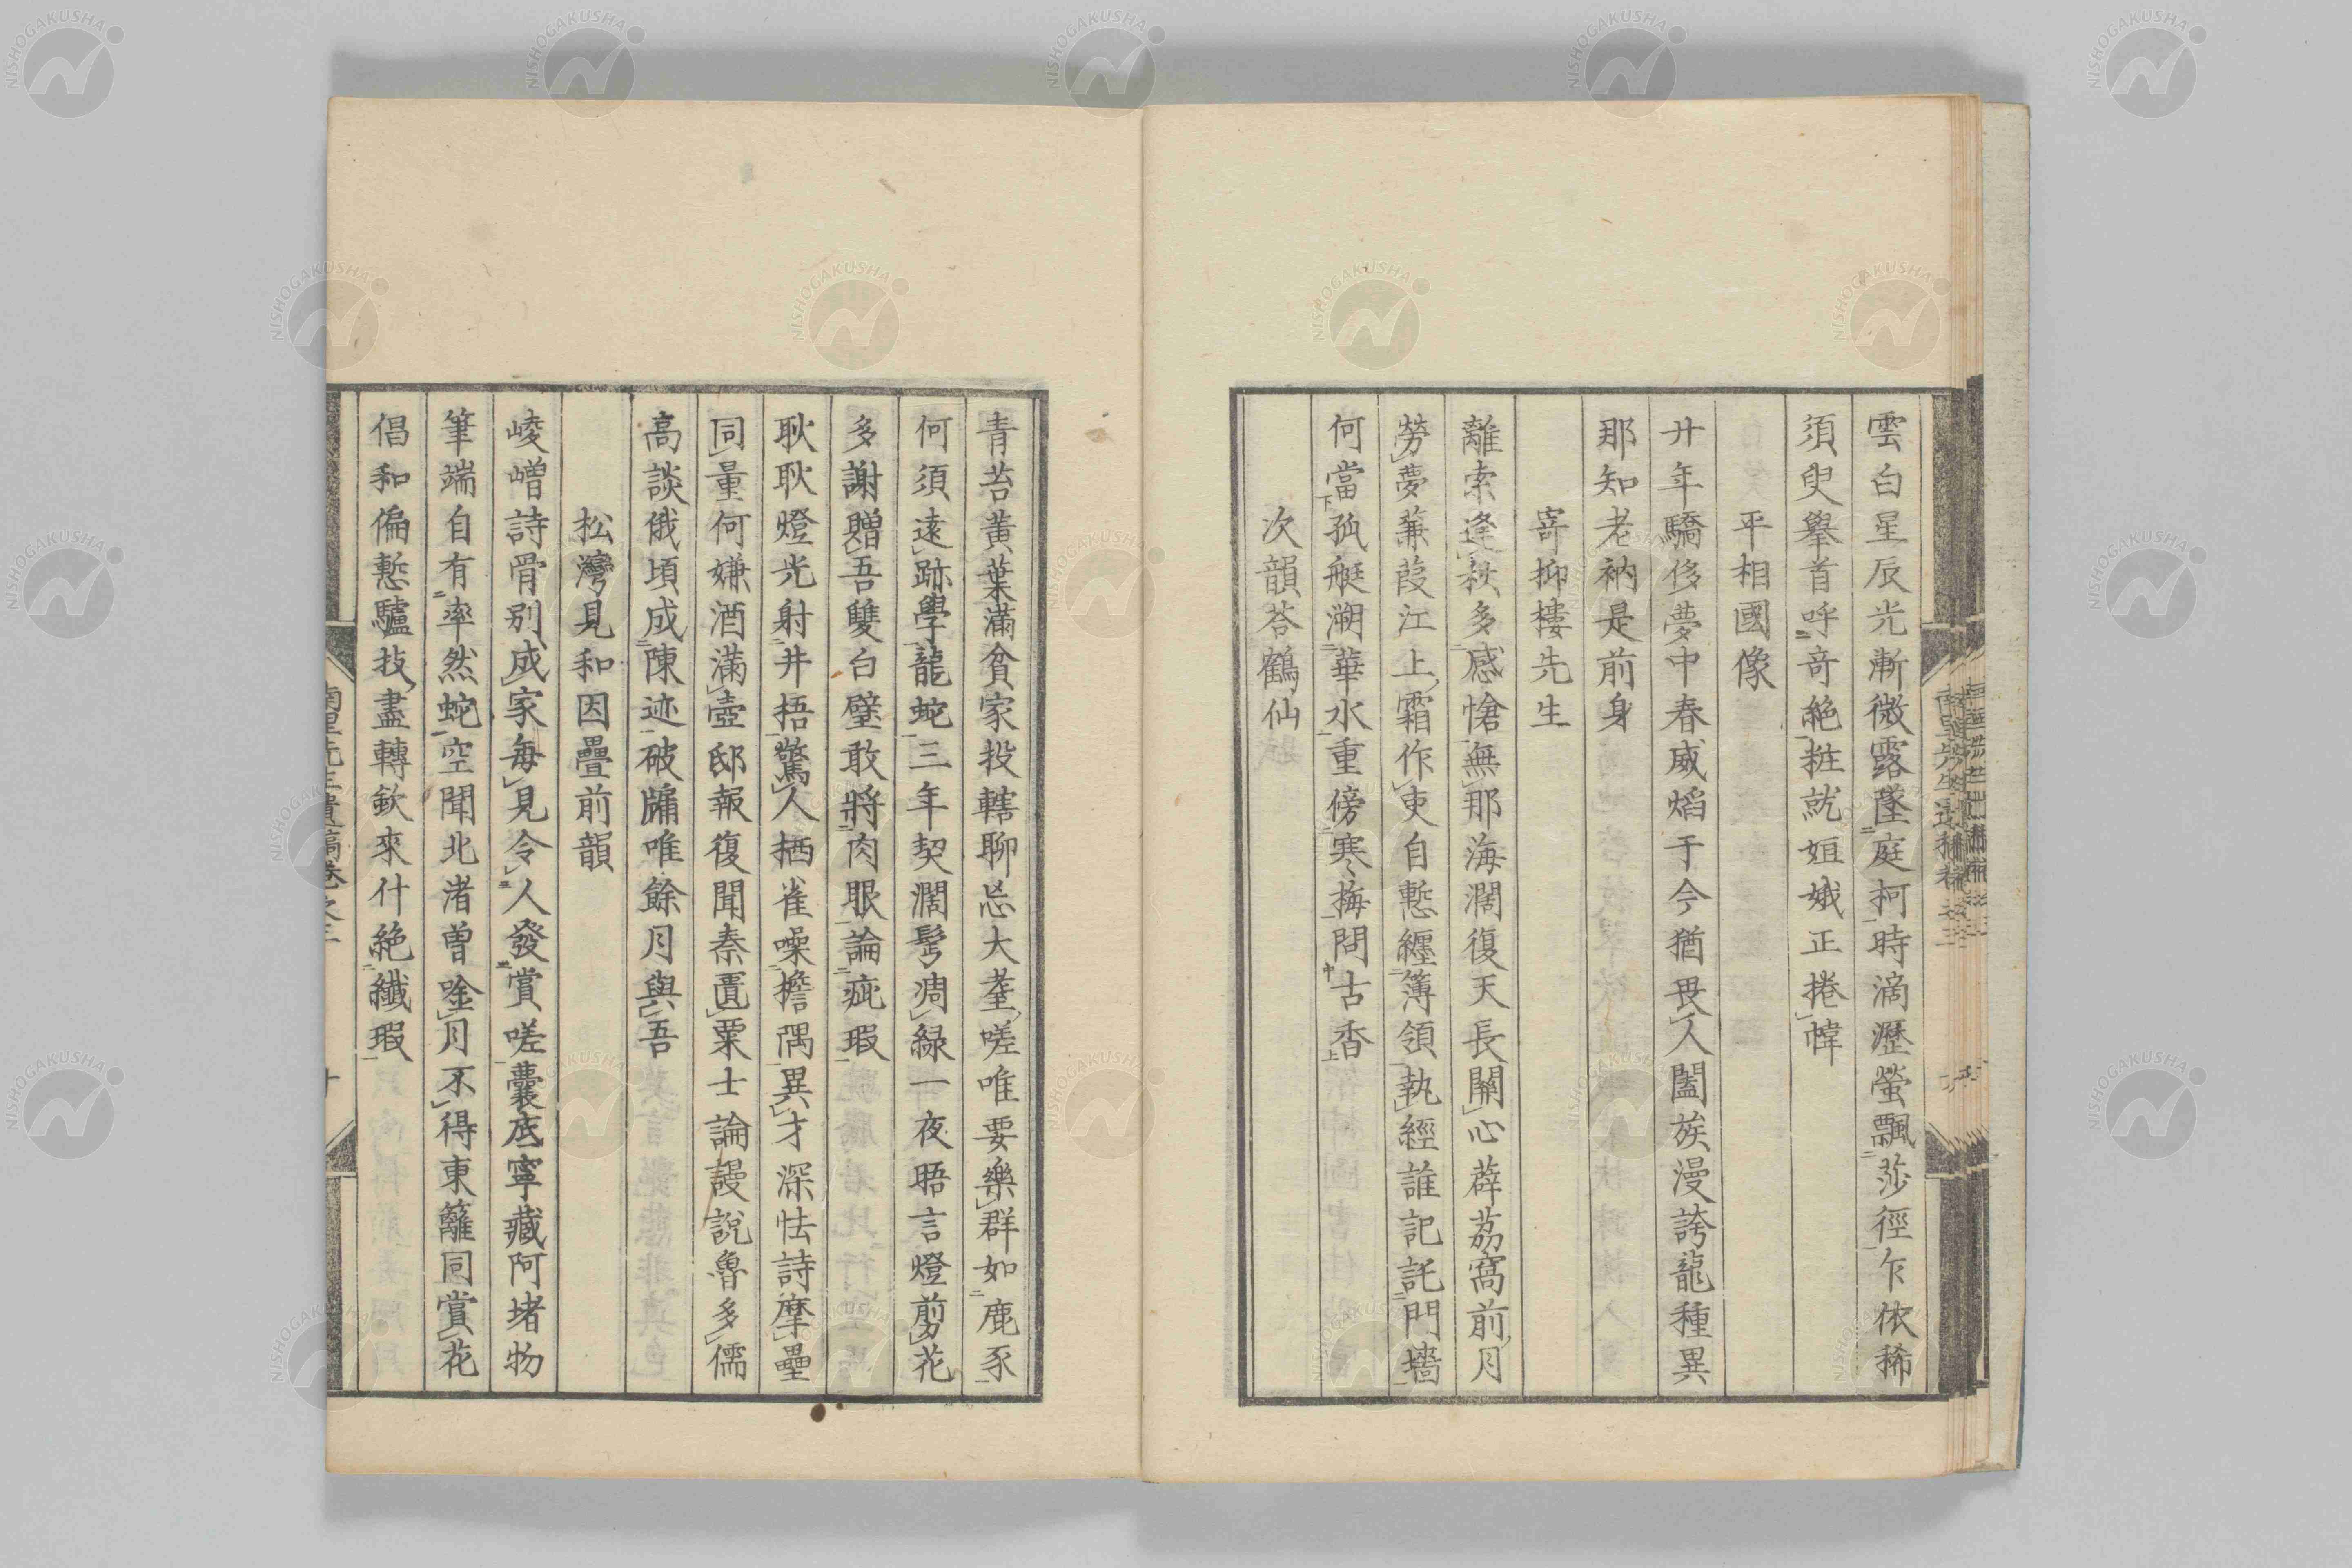 雲白星辰光漸微露墜庭柯時滴瀝螢飄莎徑乍依稀
須臾擧首呼奇絶粧就姮娥正捲幃
平相國像
廾年驕侈夢中春威焰于今猶畏人闔族漫誇龍種異
那知老衲是前身
寄抑樓先生
離索逢秋多感愴無那海濶復天長關心薜荔窩前月
勞夢蒹葭江上霜作吏自慙纏簿領執經誰記託門墻
何當孤艇溯華水重傍寒梅問古香
次韻荅鶴仙
青苔黃葉滿貧家投轄聊忘大耋嗟唯要樂群如鹿豕
何須遠跡學龍蛇三年契濶髩凋綠一夜晤言燈剪花
多謝贈吾雙白璧敢將肉眼論疵瑕
耿耿燈光射井梧驚人栖雀噪檐隅異才深怯詩摩壘
同量何嫌酒滿壺邸報復聞秦匱粟士論謾說魯多儒
高談俄頃成陳迹破牖唯餘月與吾
松灣見和因疊前韻
崚嶒詩骨別成家每見令人發賞嗟囊底寧藏阿堵物
筆端自有率然蛇空聞北渚曾唫月不得東籬同賞花
倡和偏慙驢技盡轉欽來什絶纖瑕